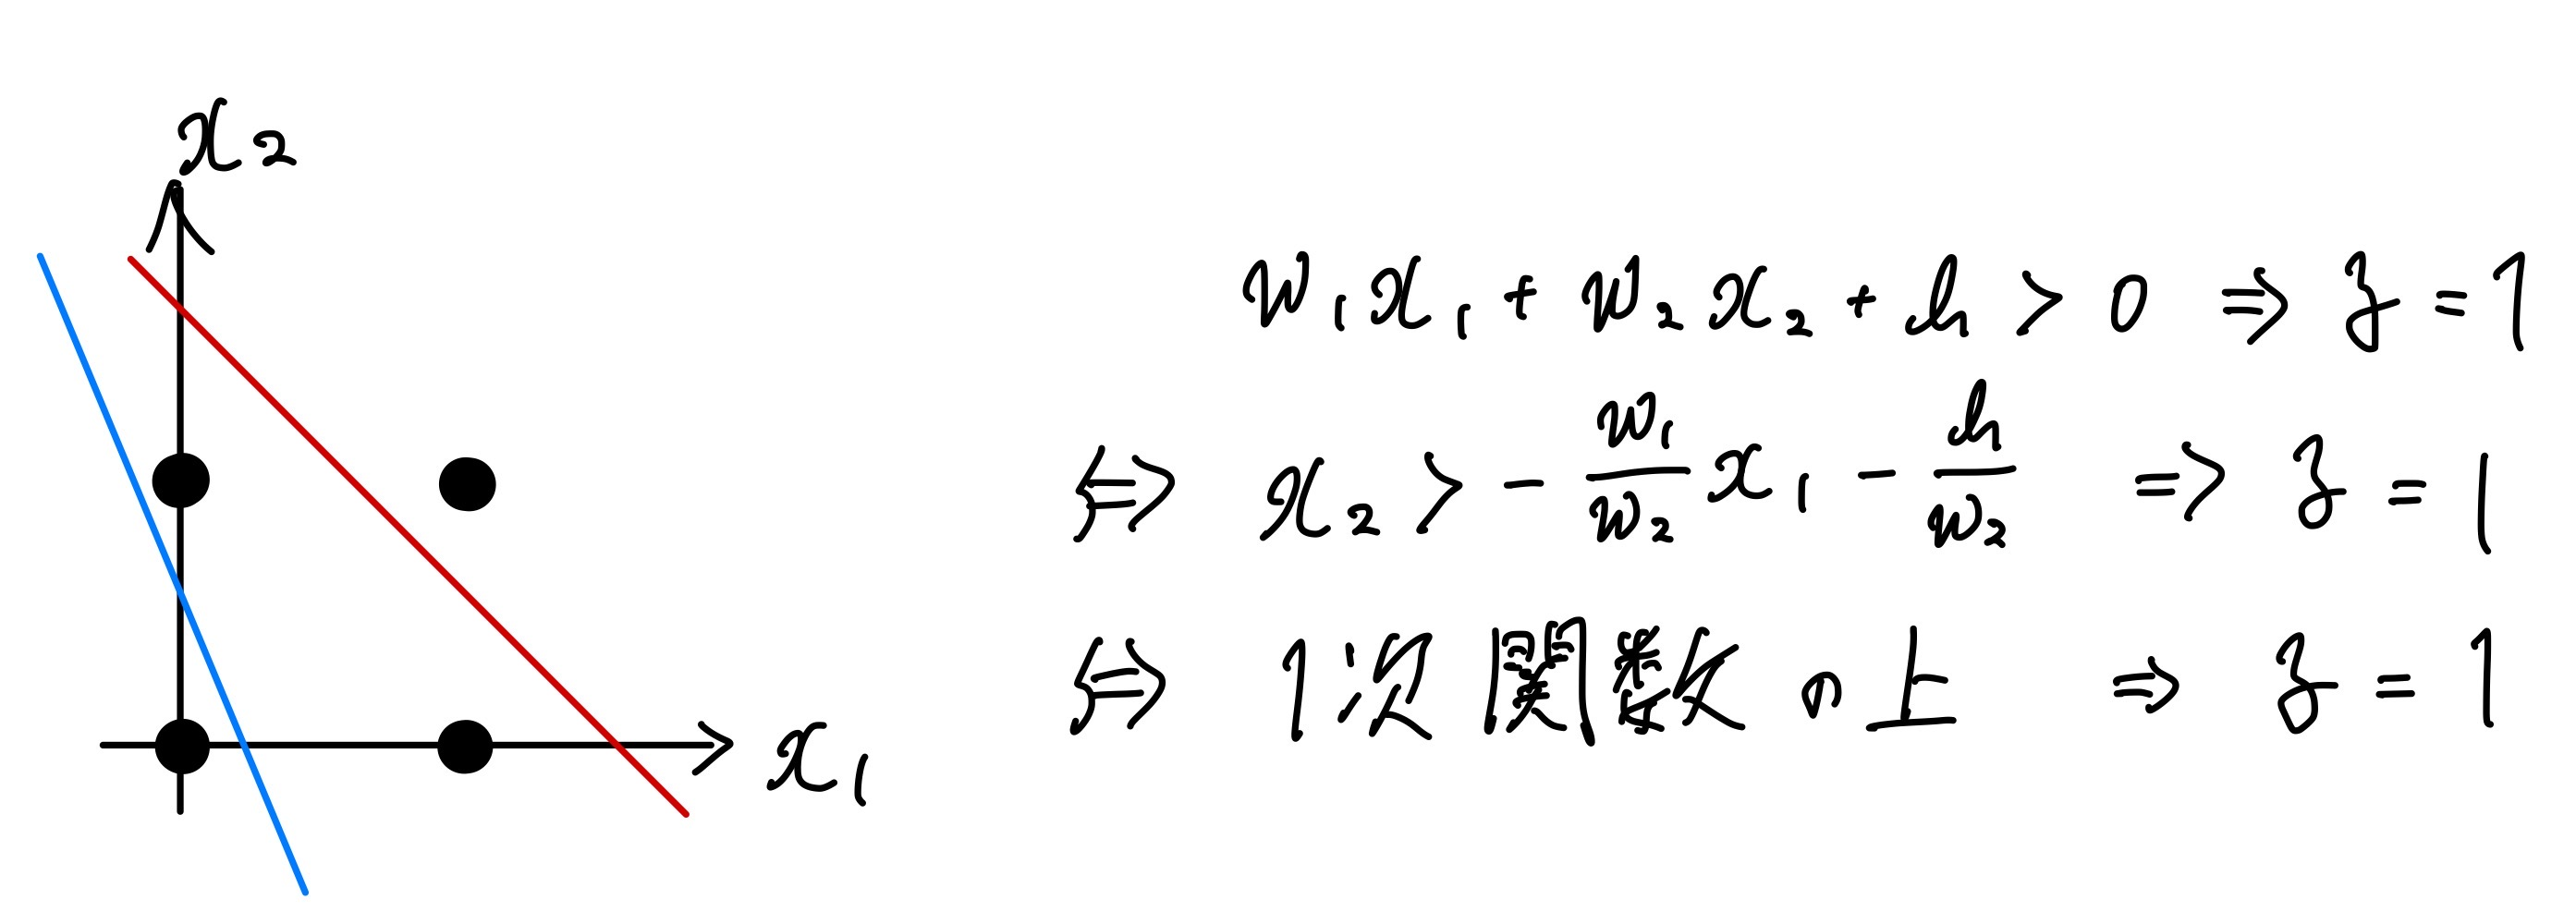 x₂
x₁
w₁x₁ + w₂x₂ + h > 0 ⇒ z = 1
⇔ x₂ > - w₁/w₂ x₁ - h/w₂ ⇒ z = 1
⇔ 1次関数の上 ⇒ z = 1